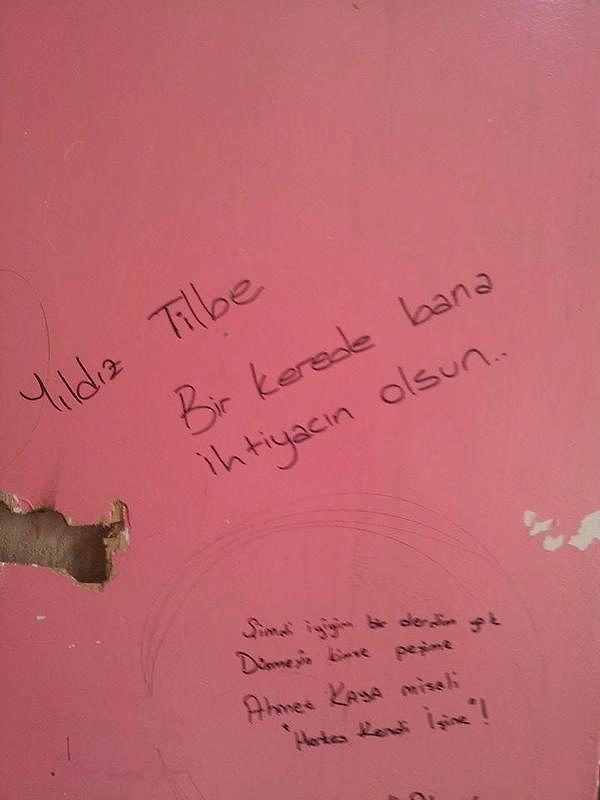 Yıldız Tilbe
Bir kerede bana
ihtiyacın olsun..
Şimdi iyiyim bir derdim yok
Düşmesin kimse peşime
Ahmet KAYA misali
"Herkes Kendi İşine"!